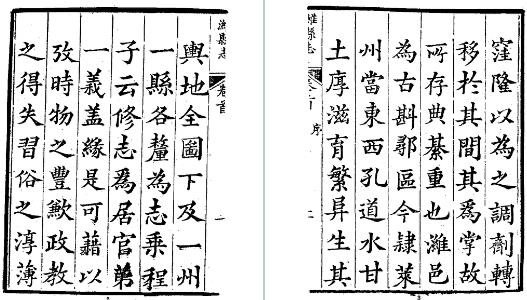 窪隆以為之調劑轉
移於其間其爲掌故
所存典綦重也濰邑
為古斟鄩區今隸萊
州當東西孔道水甘
土厚滋育繁昇生其
濰縣志
序
濰縣志
卷首
輿地全圖下及一州
一縣各釐為志乘程
子云修志爲居官第
一義盖緣是可藉以
攷時物之豐歉政教
之得失習俗之淳薄